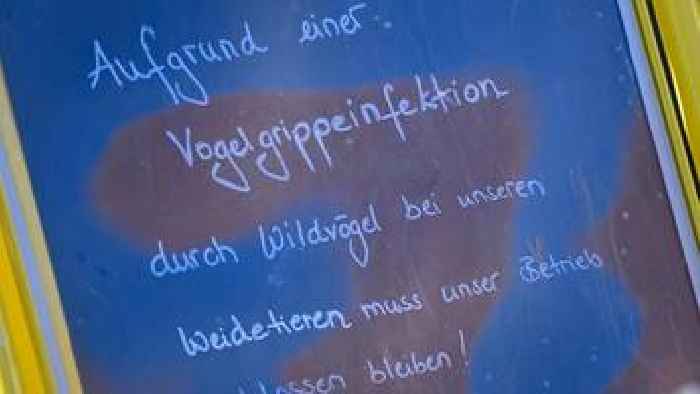 Aufgrund einer
Vogelgrippeinfektion
durch Wildvögel bei unseren
Weidetieren muss unser Betrieb
lossen bleiben!